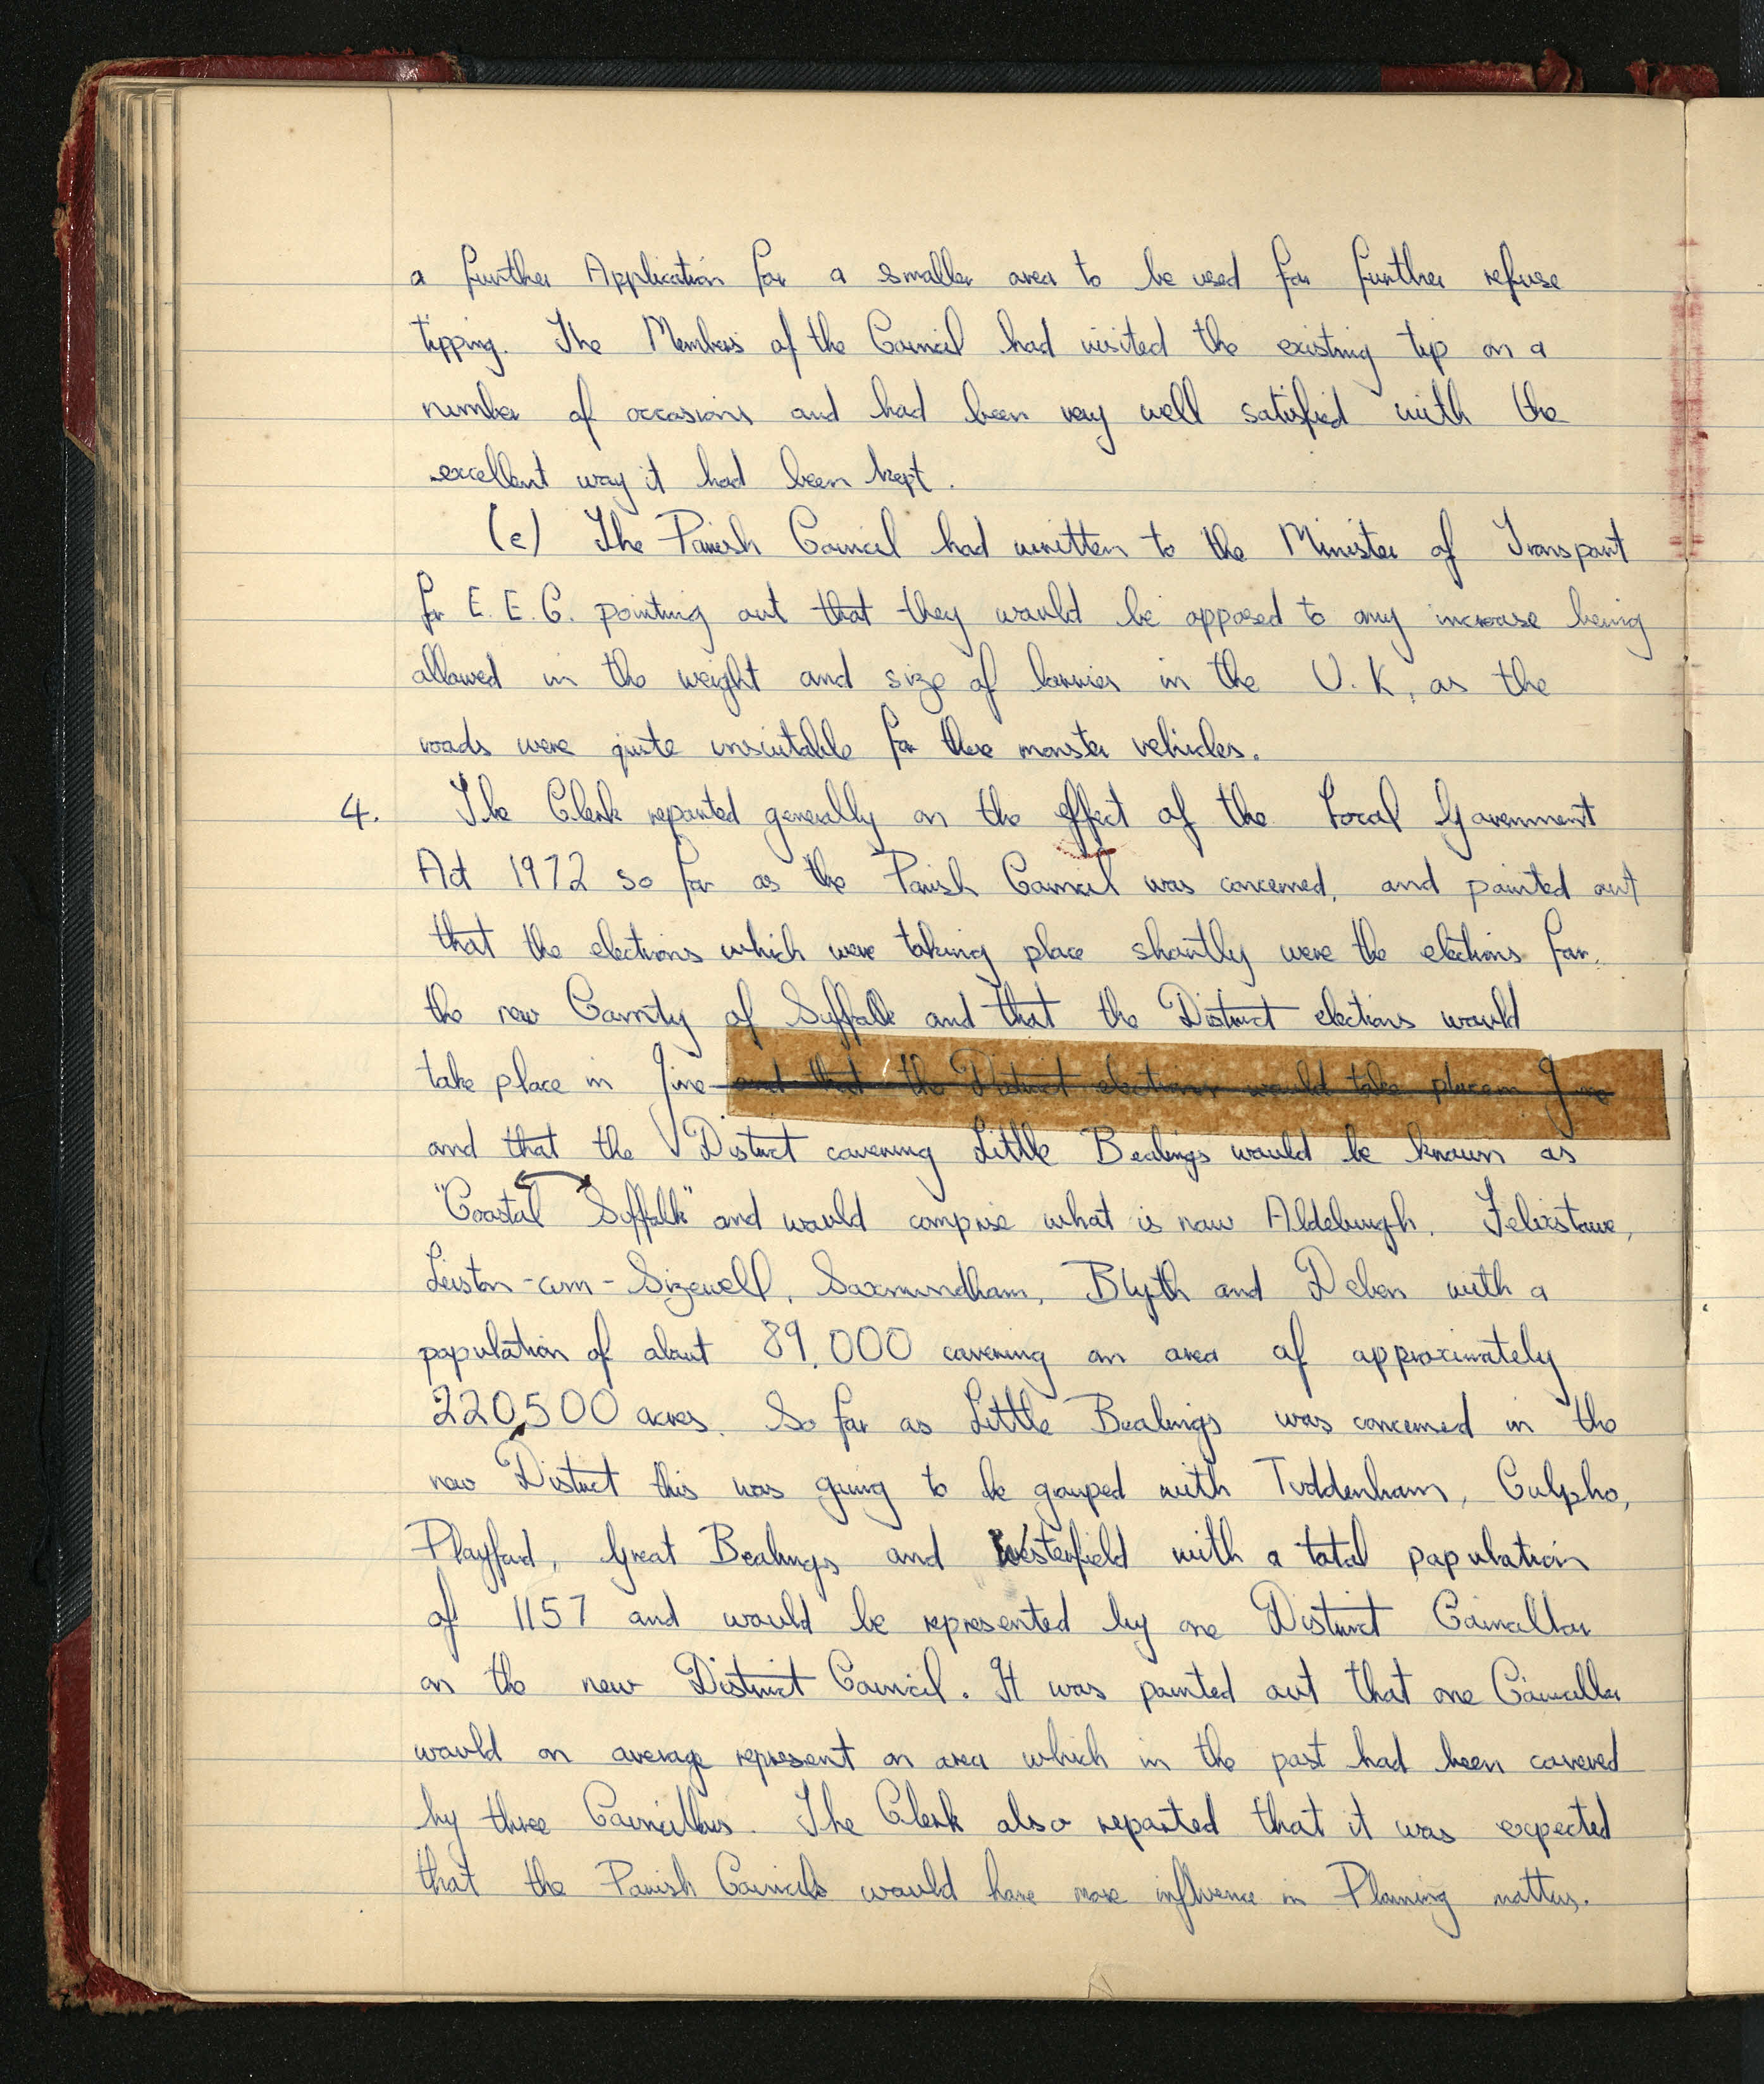 a further Application for a smaller area to be used for further refuse
tipping. The Members of the Council had visited the existing tip on a
number of occasions and had been very well satisfied with the
excellent way it had been kept.
(e) The Parish Council had written to the Minister of Transport
for E.E.C. pointing out that they would be opposed to any increase being
allowed in the weight and size of lorries in the U.K, as the
roads were quite unsuitable for these monster vehicles.
4. The Clerk reported generally on the effect of the Local Government
Act 1972 so far as the Parish Council was concerned, and pointed out
that the elections which were taking place shortly were the elections for
the new County of Suffolk and that the District elections would
take place in June and that the District elections would take place in June
and that the District covering Little Bealings would be known as
"Coastal Suffolk" and would comprise what is now Aldeburgh, Felixstowe,
Leiston-cum-Sizewell, Saxmundham, Blyth and Deben with a
population of about 89,000 covering an area of approximately
220,500 acres. So far as Little Bealings was concerned in the
new District this was going to be grouped with Tuddenham, Culpho,
Playford, Great Bealings and Westerfield with a total population
of 1157 and would be represented by one District Councillor
on the new District Council. It was pointed out that one Councillor
would on average represent an area which in the past had been covered
by three Councillors. The Clerk also reported that it was expected
that the Parish Councils would have more influence in Planning matters.